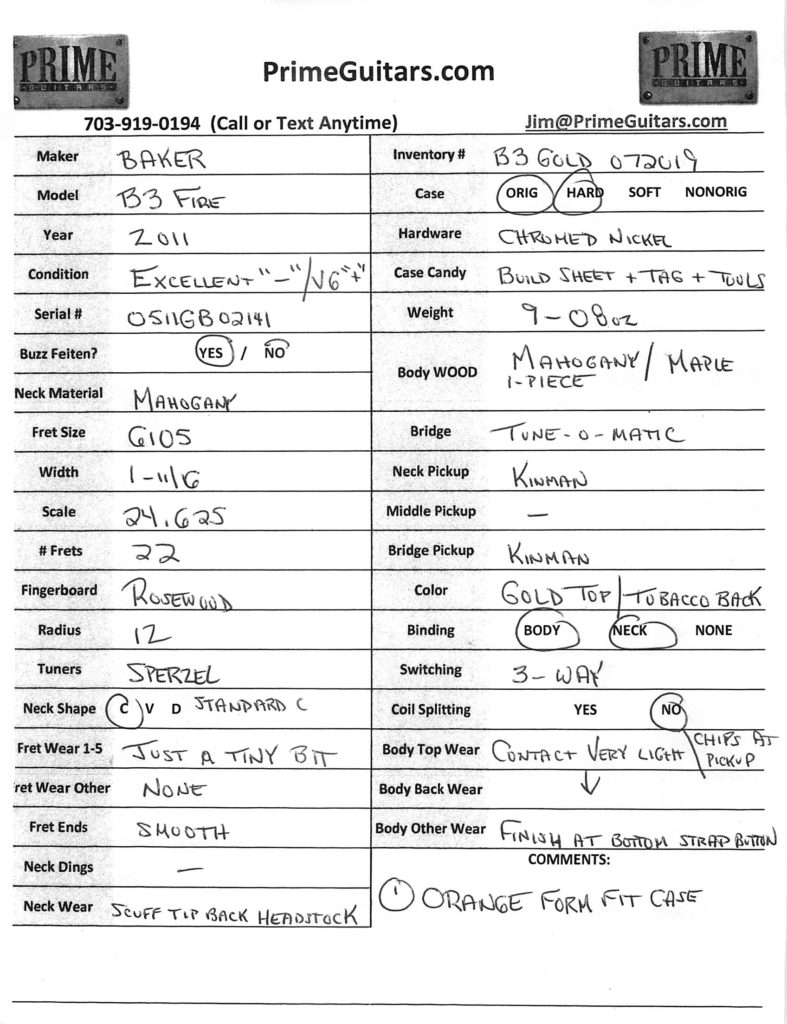 PRIME
GUITARS
PrimeGuitars.com
PRIME
GUITARS
703-919-0194 (Call or Text Anytime)
Jim@PrimeGuitars.com
Maker BAKER
Model B3 FIRE
Year 2011
Condition EXCELLENT "-"/VG "+"
Serial # 0511GB02141
Buzz Feiten? YES / NO
Neck Material MAHOGANY
Fret Size 6105
Width 1-11/16
Scale 24.625
# Frets 22
Fingerboard ROSEWOOD
Radius 12
Tuners SPERZEL
Neck Shape C V D STANDARD C
Fret Wear 1-5 JUST A TINY BIT
ret Wear Other NONE
Fret Ends SMOOTH
Neck Dings —
Neck Wear SCUFF TIP BACK HEADSTOCK
Inventory # B3 GOLD 072019
Case ORIG HARD SOFT NONORIG
Hardware CHROMED NICKEL
Case Candy BUILD SHEET + TAG + TOOLS
Weight 9-08oz
Body WOOD MAHOGANY / MAPLE
1-PIECE
Bridge TUNE-O-MATIC
Neck Pickup KINMAN
Middle Pickup —
Bridge Pickup KINMAN
Color GOLD TOP / TOBACCO BACK
Binding BODY NECK NONE
Switching 3-WAY
Coil Splitting YES NO
Body Top Wear CONTACT VERY LIGHT \ CHIPS AT
PICKUP
Body Back Wear ↓
Body Other Wear FINISH AT BOTTOM STRAP BUTTON
COMMENTS:
① ORANGE FORM FIT CASE